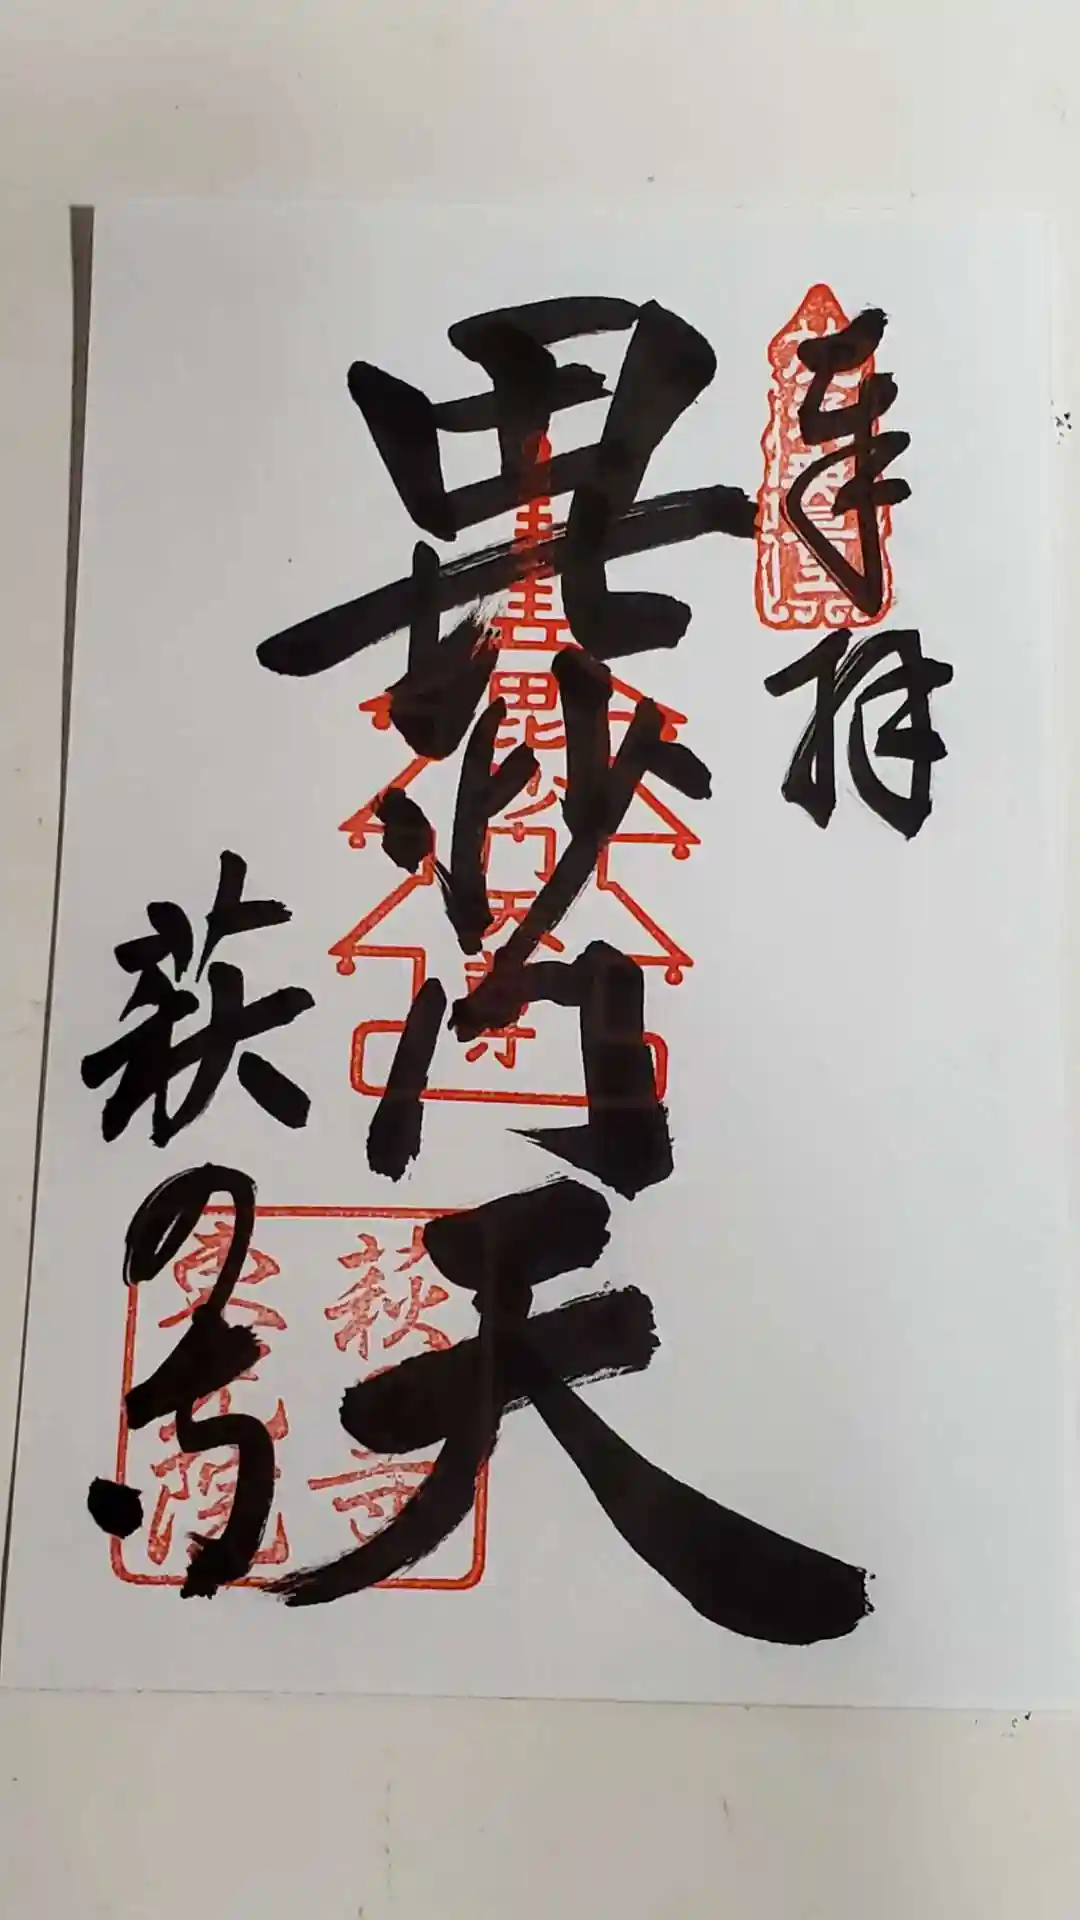 奉拝
毘沙門天
毘沙門天
萩の寺
萩の寺
東光院